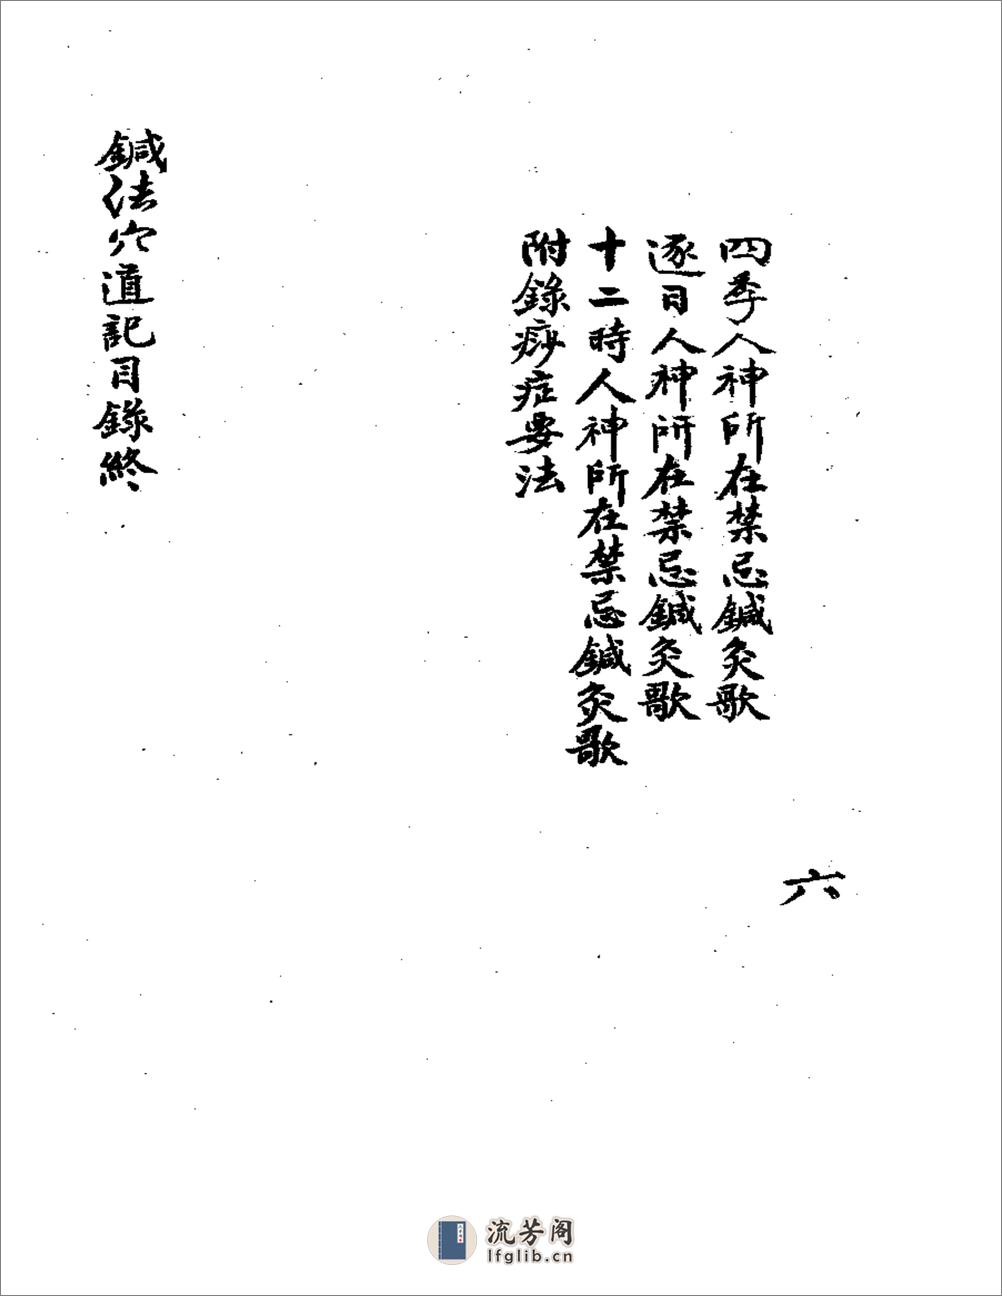 六
四季人神所在禁忌鍼灸歌
逐日人神所在禁忌鍼灸歌
十二時人神所在禁忌鍼灸歌
附錄痧症要法
鍼法穴道記目錄終
流芳阁
lfglib.cn